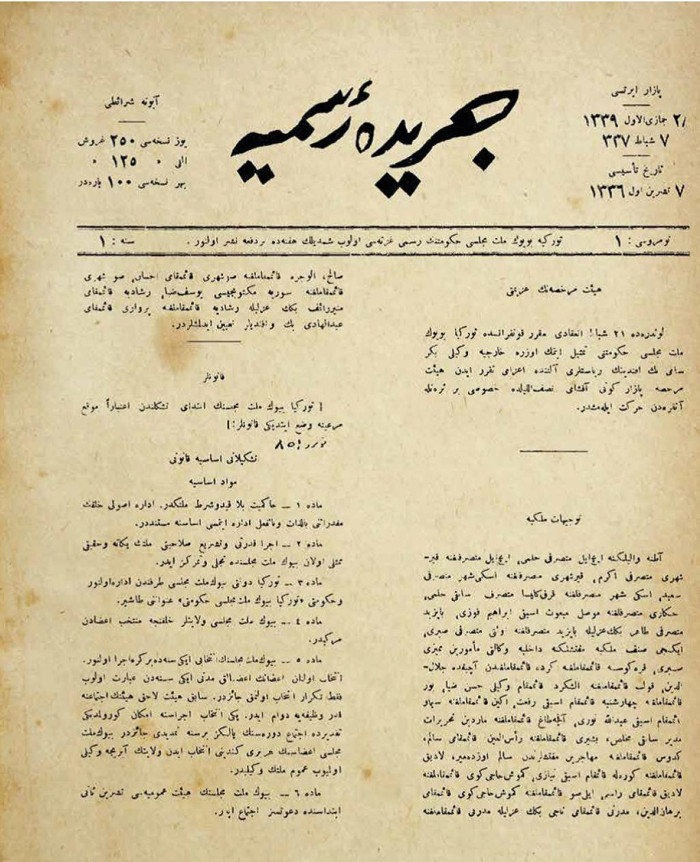 پازار ایرتسی
۲۸ جمازی‌الاول ۱۳۳۹
۷ شباط ۳۳۷
تاریخ تأسیسی
۷ تشرین اول ۱۳۳۶
جریدهٔ رسمیه
آبونه شرائطی
یوز نسخه‌سی ۲۵۰ غروش
اللی » ۱۲۵ »
بهر نسخه‌سی ۱۰۰ پاره‌در
نومروسی : ۱
تورکیه بویوك ملت مجلسی حکومتنك رسمی غزته‌سی اولوب شمدیلك هفته‌ده بردفعه نشر اولنور .
سنه : ۱
هیئت مرخصه‌نك عزیمتی
لوندره‌ده ۲۱ شباط انعقادی مقرر قونفرانسده تورکیا بویوك
ملت مجلسی حکومتنی تمثیل ایتمك اوزره خارجیه وکیلی بکر
سامی بك افندینك ریاستلری آلتنده اعزامی تقرر ایدن هیئت
مرخصه پازار کونی آقشامی نصف‌اللیلده خصوصی بر ترنله
آنقره‌دن حرکت ایله‌مشدر.
توجیهات ملکیه
شهری متصرفی اکرم، قیرشهری متصرفلغنه اسکی‌شهر متصرفی
سعید، اسکی شهر متصرفلغنه قرق‌کلیسا متصرف سابقی حلمی،
حکاری متصرفلغنه موصل مبعوث اسبقی ابراهیم فوزی، بایزید
متصرفی طاهر بك‌عزلیله بایزید متصرفلغنه اولتی متصرفی صبری،
ایکنجی صنف ملکیه مفتشلکنه داخلیه وکالتی مأمورین ممیزی
الدین، قائمقام وکیلی حسن ضیا، بور
قائممقاملغنه چهارشنبه قائمقام اسبقی رفعت،
قائمقام اسبقی عبدالله نوری، قائممقاملغنه ماردین تحریرات
مدیر سابقی مخلص، بشیری قائممقاملغنه رأس‌العین قائمقامی سالم،
قائممقاملغنه قائمقام اسبقی نیازی، کموش‌حاجی‌کوی قائممقاملغنه
لادیق قائمقامی راسم، قائممقاملغنه کموش‌حاجی‌کوی قائمقامی
برهان‌الدین، مدرنی قائمقامی ناجی بك عزلیله مدرنی قائممقاملغنه
صالح، الوجره قائممقاملغنه قائمقامی احسان، صو شهری
قائممقاملغنه سوریه مکتوبجیسی یوسف‌ضیا، رشادیه قائمقامی
منیررائف بك عزلیله رشادیه قائممقاملغنه پرواری قائمقامی
عبدالهادی بك و افندیلر تعیین ایدلمشلردر.
قانونلر
[ تورکیا بیوك ملت مجلسنك ابتدای تشکلندن اعتباراً موقع
مرعیته وضع ایتدیکی قانونلر:]
نومرو ۸۵
تشکیلاتی اساسیه قانونی
مواد اساسیه
ماده ۱ — حاکمیت بلا قیدوشرط ملتکدر. اداره اصولی خلقك
مقدراتنی بالذات وبالفعل اداره ایتمسی اساسنه مستنددر.
ماده ۲ — اجرا قدرتی وتشریع صلاحیتی ملتك یکانه وحقیقی
ممثلی اولان بیوك ملت مجلسنده تجلی وتمرکز ایدر.
ماده ۳ — تورکیا دولتی بیوك‌ملت مجلسی طرفندن اداره‌اولنور
وحکومتی «تورکیا بیوك ملت‌مجلسی حکومتی» عنواننی طاشیر.
ماده ٤ — بیوك ملت مجلسی ولایتلر خلقنجه منتخب اعضادن
مرکبدر.
ماده ٥ — بیوك‌ملت مجلسنك‌انتخابی ایکی سنه‌ده‌برکره‌اجرا اولنور.
انتخاب اولنان اعضانك اعضالق مدتی ایکی سنه‌دن عبارت اولوب
فقط تکرار انتخاب اولنمق جائزدر. سابق هیئت لاحق هیئتك‌اجتماعنه
قدر وظیفه‌یه دوام ایدر. یکی انتخاب اجراسنه امکان کورولمدیکی
تقدیرده اجتماع دوره‌سنك یالکز برسنه تمدیدی جائزدر بیوك‌ملت
مجلسی اعضاسنك هربری کندینی انتخاب ایدن ولایتك آیریجه وکیلی
اولمیوب عموم ملتك وکیلیدر.
ماده ٦ — بیوك ملت مجلسنك هیئت عمومیه‌سی تشرین ثانی
ابتداسنده دعوتسز اجتماع ایدر.